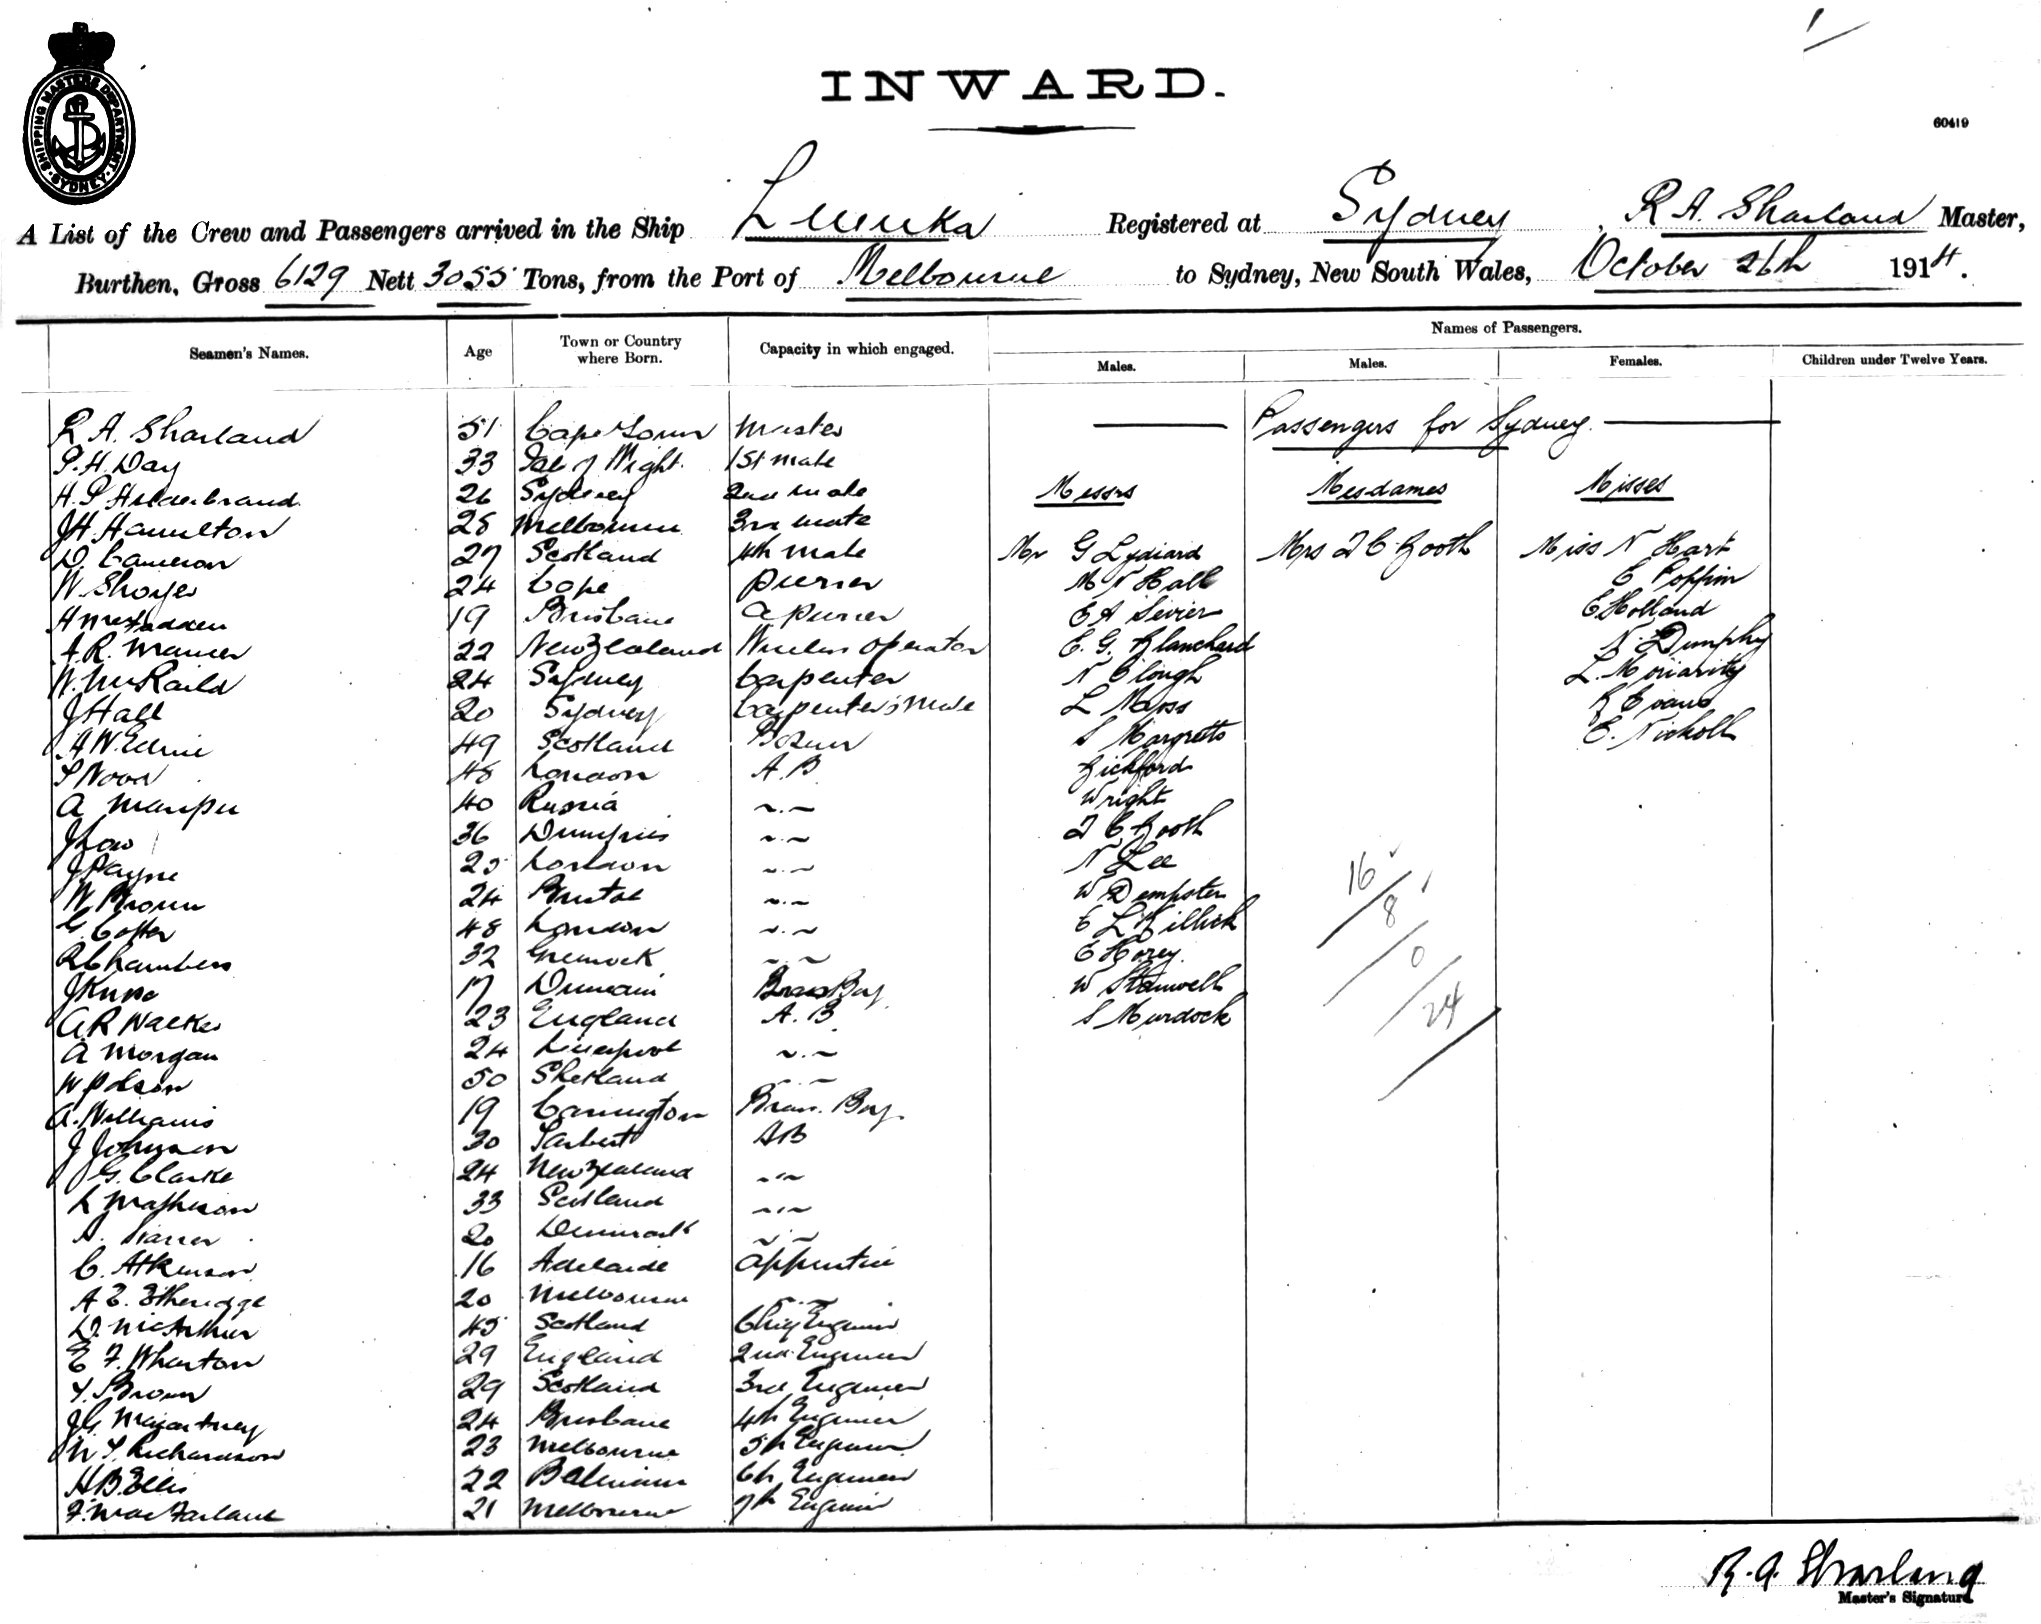 SHIPPING MASTERS DEPARTMENT. SYDNEY.
INWARD.
60419
A List of the Crew and Passengers arrived in the Ship Levuka Registered at Sydney, R A. Sharland Master,
Burthen, Gross 6129 Nett 3055 Tons, from the Port of Melbourne to Sydney, New South Wales, October 26th 1914.
Seamen's Names. Age Town or Country where Born. Capacity in which engaged. Names of Passengers.
Males. Males. Females. Children under Twelve Years.
Passengers for Sydney.
R A. Sharland 51 Cape Town Master
P. H. Day 33 Isle of Wight. 1st mate
H. P Hilderbrand 26 Sydney 2nd mate Messrs Mesdames Misses
J H. Hamilton 28 Melbourne 3rd mate
D. Cameron 27 Scotland 4th mate Mr G Lydiard Mrs T C Booth Miss N Hart
W. Shoyer 24 Cape purser M N Hall E Poppin
H McFadden 19 Brisbane a purser E A Sevier E Holland
A. R. Manser 22 New Zealand Wireless operator E. G. Blanchard N. Dumphy
W. 24 Sydney Carpenter N Clough L. Moriarity
J Hall 20 Sydney Carpenter's Mate L Moss R Evans
A W. 49 Scotland Bosun S Margretts E. Nicholl
Wood 48 London A. B Bickford
A 40 Russia ~.~ Wright
J Low 36 Dumfries ~.~ T C Booth
J Payne 25 London ~.~ N Lee
W Brown 24 Bristol ~.~ W Dempster
G. 48 London ~.~ E L Killick
R Chambers 32 Greenock ~.~ E Horey.
J 17 Brass Boy W Stanwell
A R Walker 23 England A. B S Murdock
A Morgan 24 Liverpool ~.~
W Polson 50 Shetland ~.~
A. Williams 19 Carrington Brass. Boy.
J Johnson 30 Tarbert AB
J G. Clarke 24 New Zealand ~.~
Matheson 33 Scotland ~.~
20 Denmark ~.~
C. Atkinson 16 Adelaide Apprentice
A E. Etheridge 20 Melbourne ~.~
D. McArthur 45 Scotland Chief Engineer
E F. Wharton 29 England 2nd Engineer
Brown 29 Scotland 3rd Engineer
J G. Macartney 24 Brisbane 4th Engineer
Richardson 23 Melbourne 5th Engineer
H B. Ellis 22 Balmain 6th Engineer
F. MacFarlane 21 Melbourne 7th Engineer
16
8
0
24
R. A. Sharland
Master's Signature